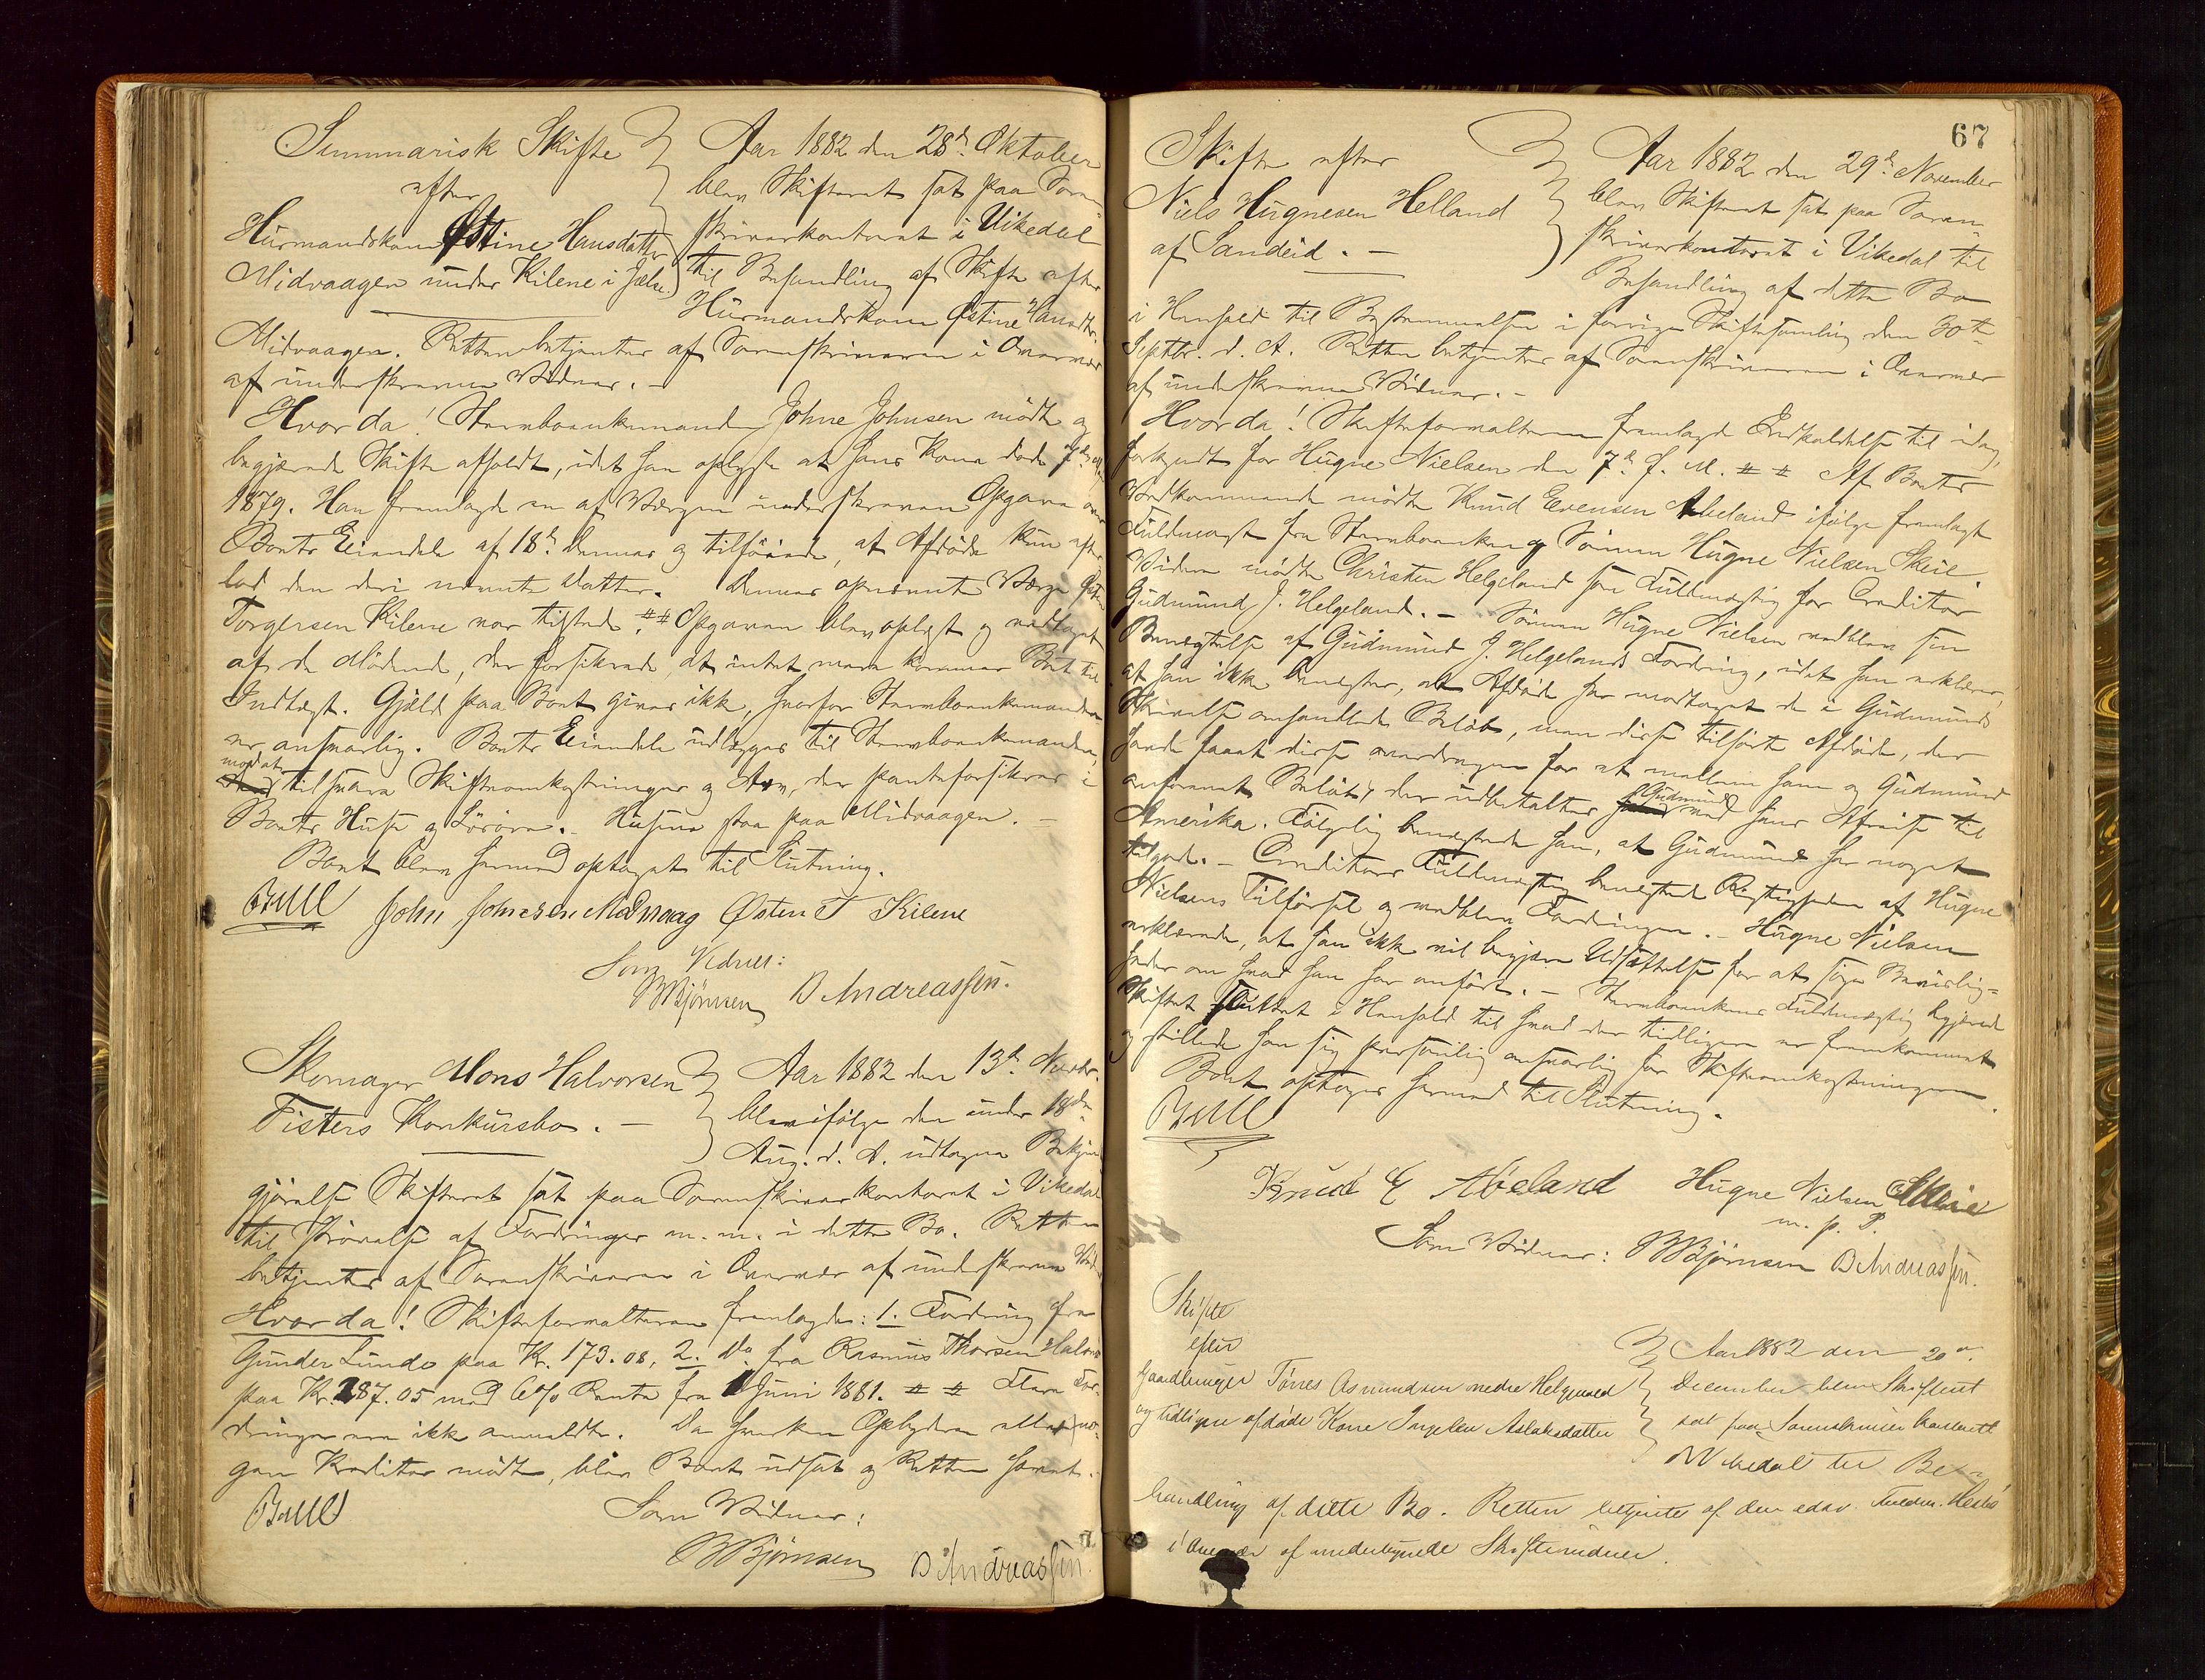 Summarisk Skifte
efter
Husmandskone Østine Hansdatter
Midvaagen under Kilene i Jælse.
Aar 1882 den 28de Oktober
blev Skifteret sat paa Soren-
skriverkontoret i Vikedal
til Behandling af Skifte efter
Husmandskone Østine Hansdtr.
Midvaagen. Retten betjentes af Sorenskriveren i Overvær
af underskrevne Vidner. –
Hvorda! Stervboenkemanden Johne Johnsen mødte og
begjærede Skifte afholdt, idet han oplyste at hans Kone døde
1879. Han fremlagde en af Værgen underskreven Opgave over
Boets Eiendele af 18de dennes og tilføiede, at Afdøde kun efter-
lod den deri nævnte Datter. Dennes opnævnte Værge Østen
Torgersen Kilene var tilstede. ⹀ Opgaven blev oplæst og vedtaget
af de Mødende, der forsikrede, at intet mere kommer Boet til
Indtægt. Gjæld paa Boet gives ikke, hvorfor Stervboenkemanden
er ansvarlig. Boets Eiendele udlægges til Stervboenkemanden,
mod at
tilsvare Skifteomkostninger og Arv, der panteforsikres i
Boets Huse og Løsøre. – Husene staa paa Midvaagen. –
Boet blev hermed optaget til Slutning.
Bull John Johnesen Midvaag Østen T Kilene
Som Vidner:
BBjørnsen B Andreassen.
Skomager Mons Halvorsen
Fisters Konkursbo. –
Aar 1882 den 13de Novbr.
blev ifølge den under 18de
Aug. d. A. udtagne Bekjendt-
gjørelse Skifteret sat paa Sorenskriverkontoret i Vikedal
til Prøvelse af Fordringer m. m. i dette Bo. Retten
betjentes af Sorenskriveren i Overvær af underskrevne Vidner.
Hvorda! Skifteforvalteren fremlagde: 1. Fordring fra
Gunder Lunde paa Kr. 173.08, 2. Do fra Rasmus Thorsen
paa Kr. 287.05 med 6% Rente fra 1 Juni 1881. ⹀ ⹀ Flere For-
dringer var ikke anmeldte. Da hverken Opbyderen eller no-
gen Kreditor mødte, blev Boet udsat og Retten hævet.
Bull Som Vidner:
BBjørnsen B Andreassen.
67
Skifte efter
Niels Hugnesen Helland
af Sandeid. –
Aar 1882 den 29de November
blev Skifteret sat paa Soren-
skriverkontoret i Vikedal til
Behandling af dette Bo
i Henhold til Bestemmelsen i forrige Skiftesamling den 30te
Septbr. d. A. Retten betjentes af Sorenskriveren i Overvær
af underskrevne Vidner. –
Hvorda! Skifteforvalteren fremlagde Indkaldelse til idag,
forkyndt for Hugne Nielsen den 7de f. M. ⹀ ⹀ Af Boets
Vedkommende mødte Knud Evensen Abeland ifølge fremlagt
Fuldmagt fra Stervboenken og Sønnen Hugne Nielsen Skeie.
Videre mødte Christen Helgeland som Fuldmægtig for Creditor
Gudmund J. Helgeland. – Sønnen Hugne Nielsen vedblev sin
Benægtelse af Gudmund J. Helgelands Fordring, idet han erklærer,
at han ikke benegter, at Afdøde har modtaget de i Gudmunds
Skrivelse omhandlede Beløb, men disse tilhørte Afdøde, der
havde faaet disse overdragen for et mellem ham og Gudmund
omforenet Beløb, der udbetaltes Gudmund ved hans Afreise til
Amerika. Følgelig benegtede han, at Gudmund har noget
tilgode. – Creditors Fuldmægtig benegtede Rigtigheden af Hugne
Nielsens Tilførsel og vedblev Fordringen. – Hugne Nielsen
erklærede, at han ikke vil begjære Udsættelse for at søge Bevislig-
heder om hvad han har anført. – Stervboenkens Fuldmægtig begjærede
Skiftet sluttet i Henhold til hvad der tidligere er fremkommet
og stillede han sig personlig ansvarlig for Skifteomkostningerne.
Boet optoges hermed til Slutning.
Bull
Knud E Abeland Hugne Nielsen Skeie
m. p. P.
Som Vidner: BBjørnsen B Andreassen.
Skifte
efter
Gaardbruger Tønes Asmundsen nedre Helgevold
og tidligere afdøde Kone Ingelev Aslaksdatter
Aar 1882 den 20de
December blev Skifteret
sat paa Sorenskriver kontoret
Vikedal til Be-
handling af dette Bo. Retten betjentes af den edsv. Fuldm.
i Overvær af undertegnede Skiftevidner.